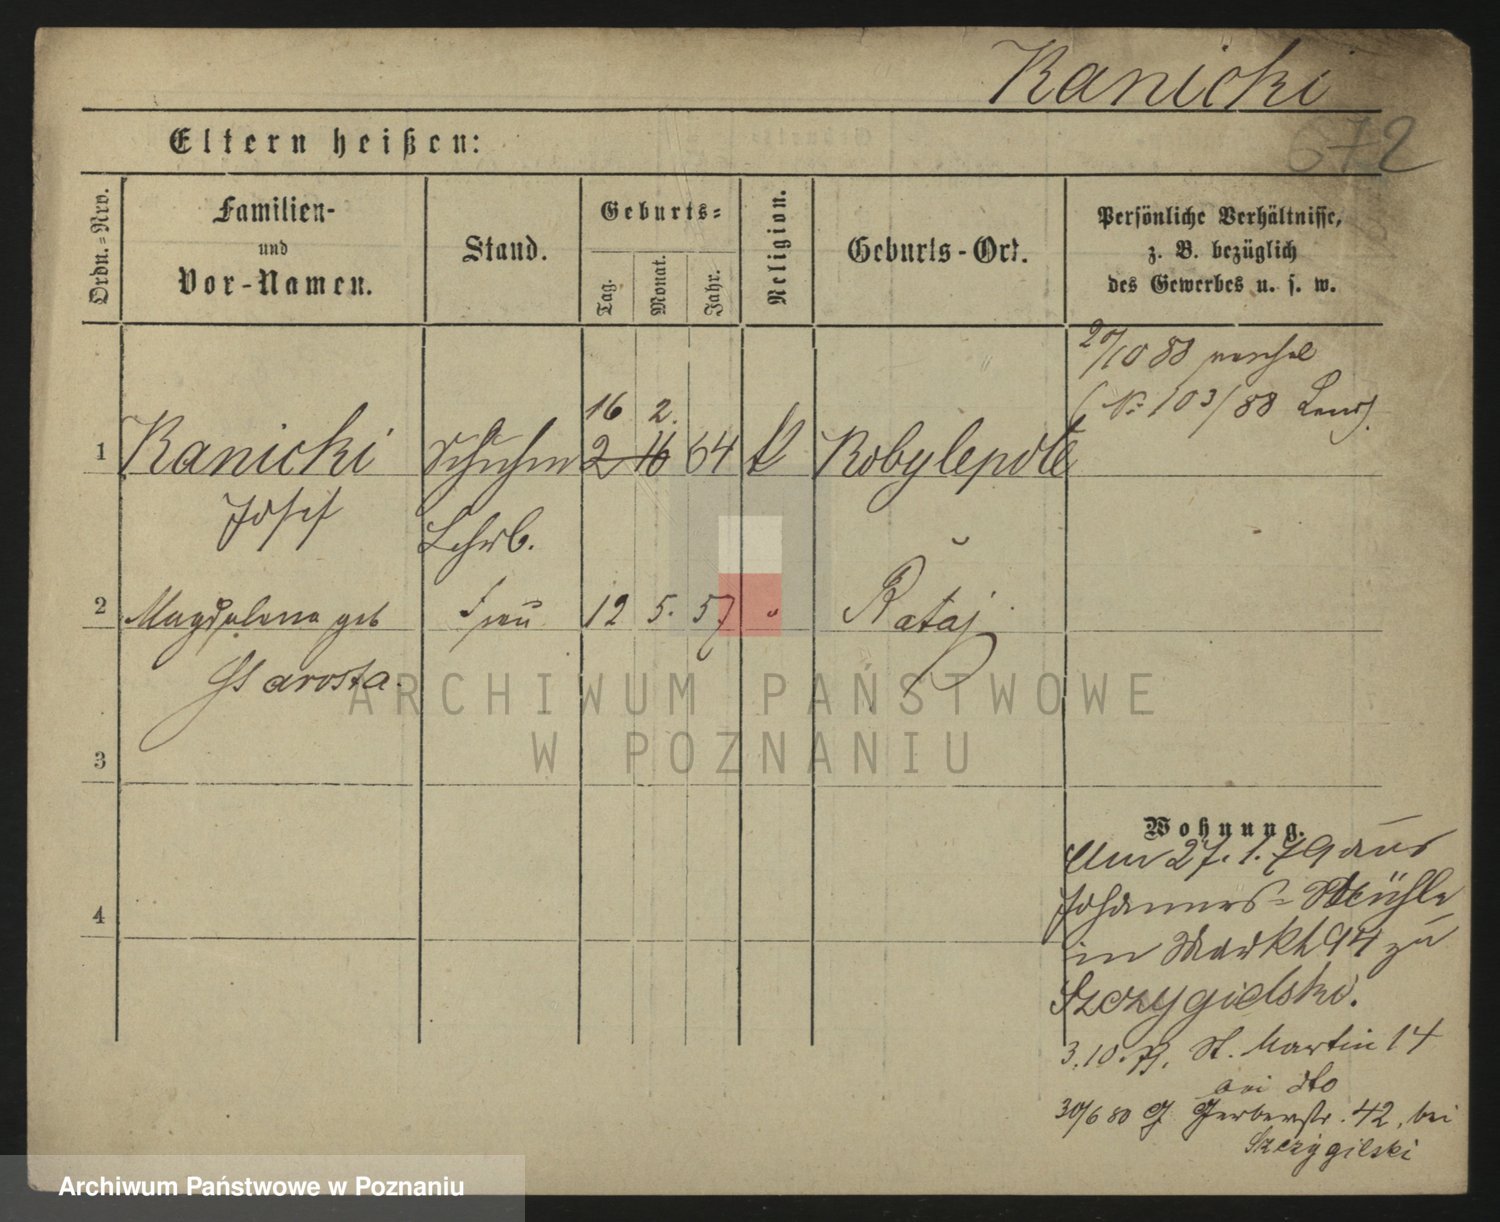 Kanicki
672
Eltern heißen:
Ordn.-Nro.
Familien-
und
Vor-Namen.
Stand.
Geburts-
Tag.
Monat.
Jahr.
Religion.
Geburts-Ort.
Persönliche Verhältnisse,
z. B. bezüglich
des Gewerbes u. s. w.
20/10 88
(N. 103/88
16 2.
1 Kanicki Schuhm 2 16 64 k Kobylepole
Josef Lehrb.
2 Magdalena geb Frau 12 5. 57 " Rataj
Starosta.
ARCHIWUM PAŃSTWOWE
W POZNANIU
3
4
Wohnung.
Am 27.1.79 aus
Johannes-Mühle
in Markt 94 zu
Szczygielski.
3.10.79. St. Martin 14
bei dto
30/6 80 Gerberstr. 42, bei
Szczygilski
Archiwum Państwowe w Poznaniu